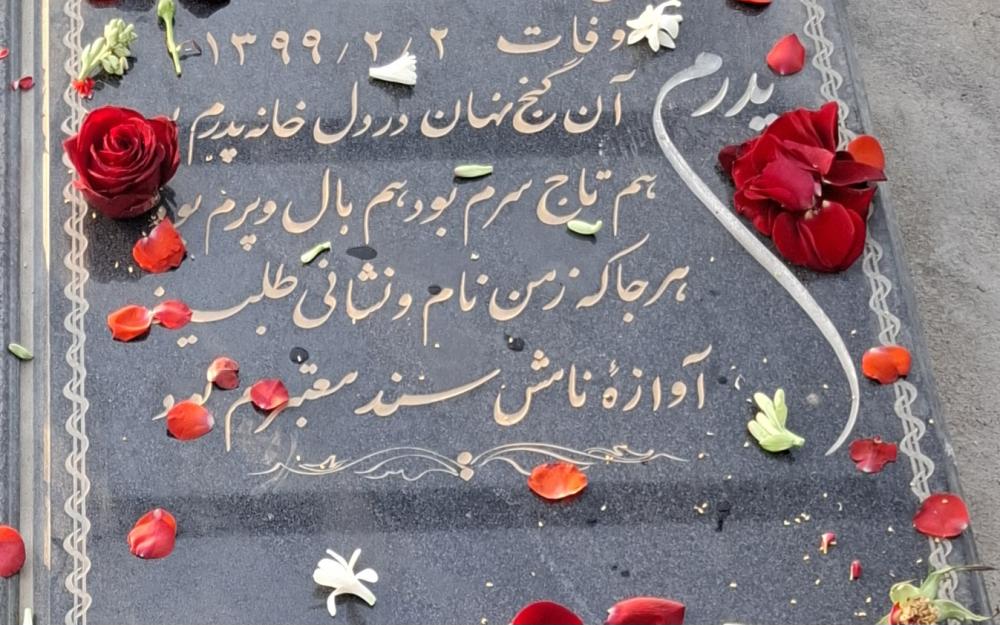 وفات ۱۳۹۹/۲/۲
پدرم
آن گنج نهان در دل خانه پدرم
هم تاج سرم بود هم بال و پرم بو
هر جا که ز من نام و نشانی طلبید
آوازهٔ نامش سند معتبرم